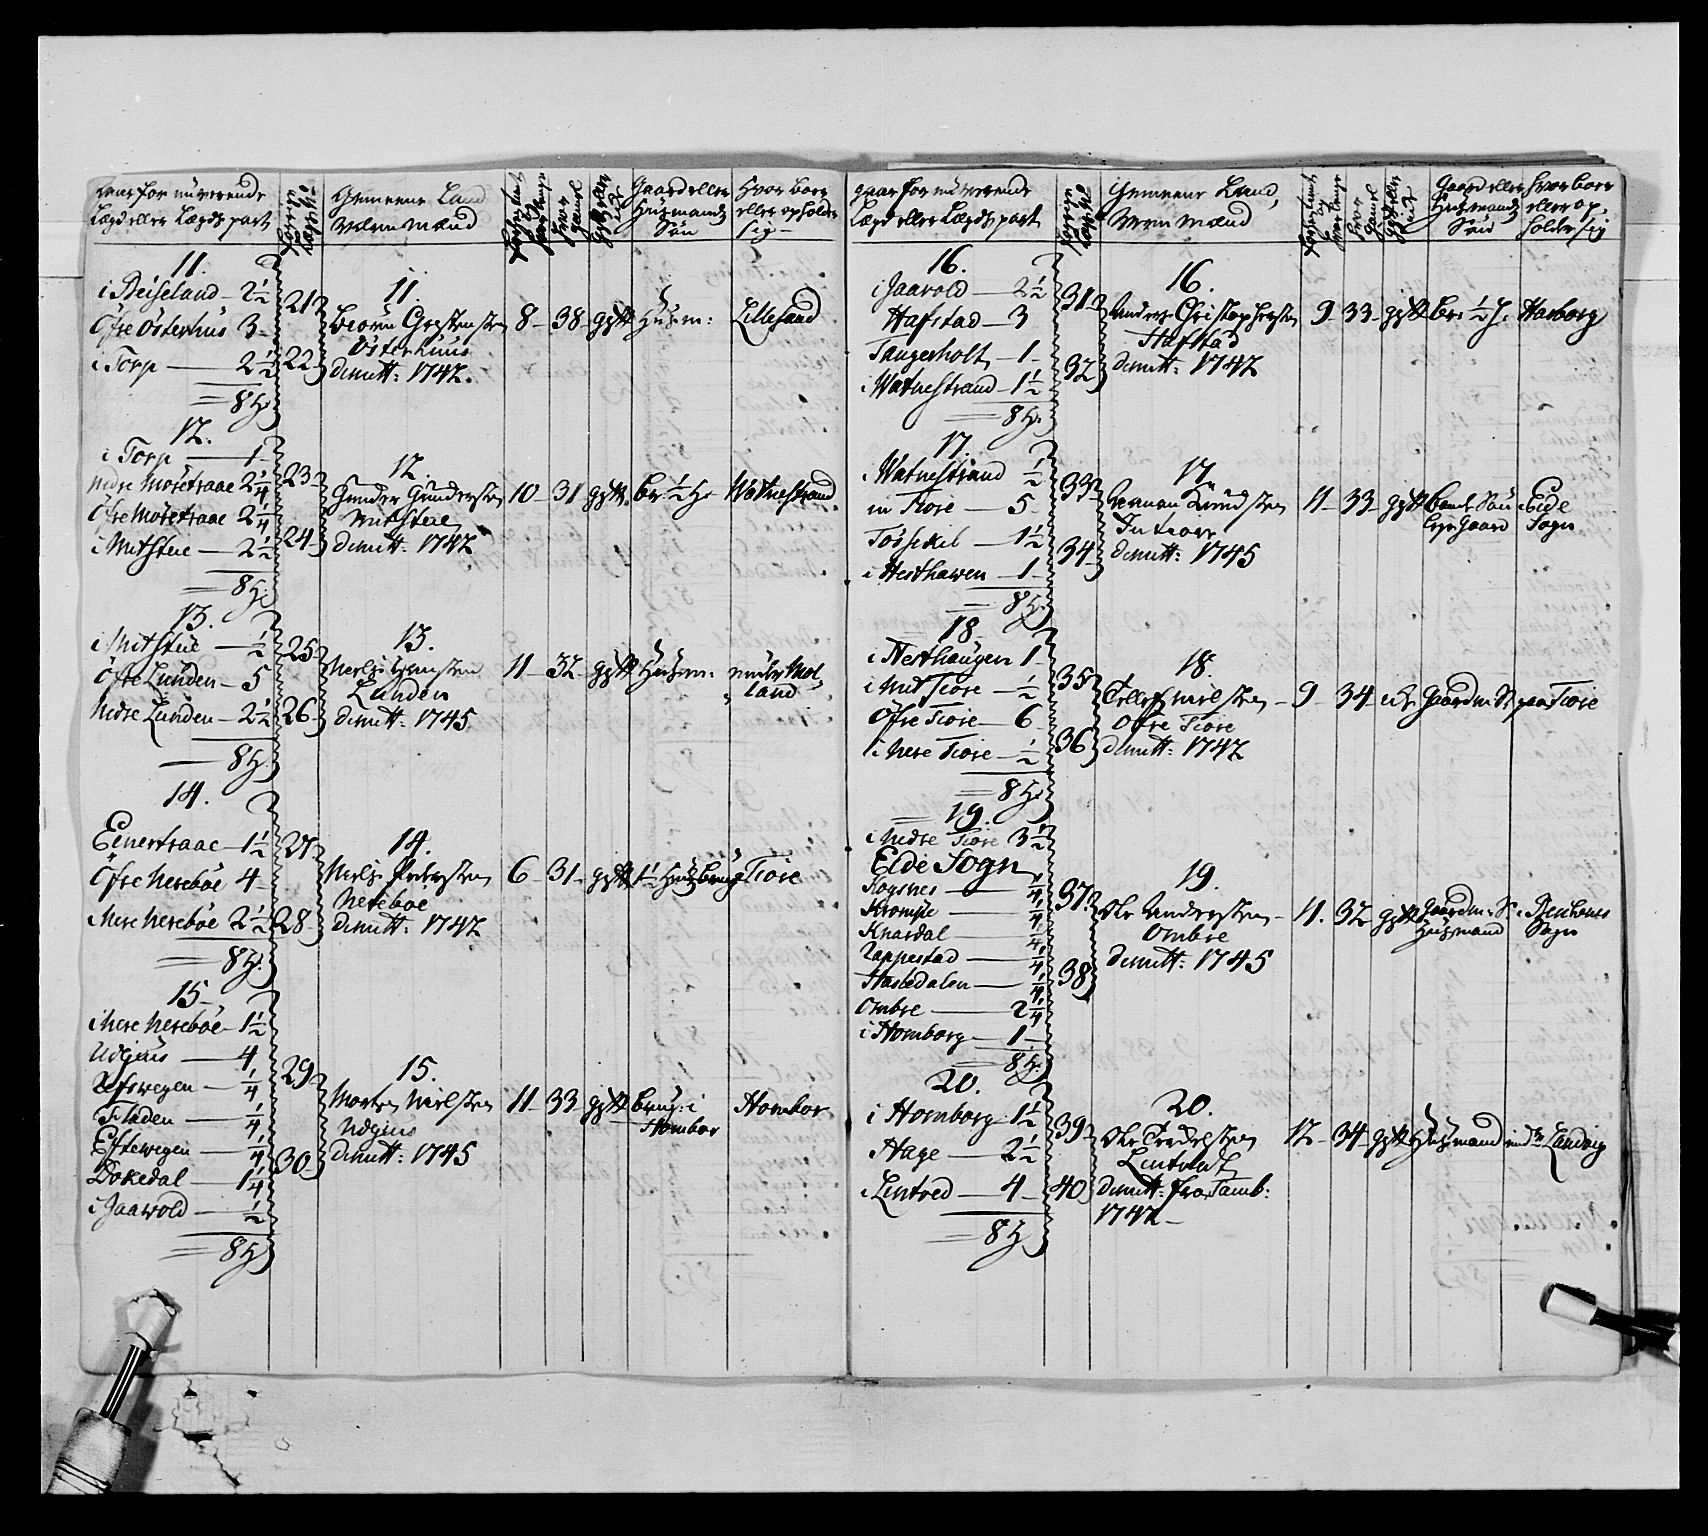 gaar for nuværende
Lægd eller Lægds part
Gemeene Land
Værn Mænd
Gaard eller
Huusmands
Søn
Hvor boer
eller opholder
sig
11.
i Beiseland 2½
Øfre Østerhuus 3
i Torp 2½
8 H.
21
22
11.
Østerhuus
dimitt: 1742.
8 38 gift Huusm: Lillesand
12.
i Torp 1
Nedre Møretraae 2¼
Øfre Møretraae 2¼
i Mitstue 2½
8 H.
23
24
12.
Gunder Gundersen
Mitstue
dimitt: 1742
10 31 gift br: ½ H. Watnestrand
13.
i Mitstue ½
Øfre Lunden 5
Nedre Lunden 2½
8 H.
25
26
13.
Lunden
dimitt: 1745
11 32 gift Huusm:
land
14.
Einertraae 1½
Øfre Nerebøe 4
i Nere Nerebøe 2½
8 H.
27
28
14.
Niels Pedersen
Nerebøe
dimitt: 1742
6 31 gift Tiøre
15
i Nere Nerebøe 1½
Udgius 4
Refswegen ¼
Fladen ¼
Eftewegen ¼
Dokedal 1¼
i Jaawold ½
8 H.
29
30
15.
Morten Nielsen
Udgius
dimitt: 1745
11 33 gift brug: i
Hombor
Hombor
gaar for nuværende
Lægd eller Lægds part
Gemeene Land,
Værn Mænd
Gaard eller
Huusmands
Søn
Hvor boer
eller op-
holder sig
16.
i Jaavold 2½
Hafstad 3
Tangesholt 1
i Watnestrand 1½
8 H.
31
32
16.
Anders Christophersen
Hafstad
dimitt: 1742
9 33 gift br: ½ H. Hamborg
17.
i Watnestrand ½
in Tiøre 5
Tøssekil 1½
i Hesthawen 1
8 H.
33
34
17.
Knudsen
dimitt: 1745
11 33 gift Søn
Gaard
i Eide
Sogn
18.
i Nesthaugen 1
i Mit Tiøre ½
Øfre Tiøre 6
i Nere Tiøre ½
8 H.
35
36
18.
Tellef Nielsen
Øfre Tiøre
dimitt: 1742
9 34 Gaardm: S. paa Tiøre
19.
i Nedre Tiøre 3½
Eide Sogn
Rogsnes ¼
Kromsle ¼
Knardal ¼
Rappestad ¼
Haabedalen ¼
Ombre 2¼
i Homborg 1
8 H.
37
38
19.
Ole Andersen
Ombre
dimitt: 1745
11. 32 gift Gaardm: S.
Huusmand
i
Sogn
20.
i Homborg 1½
Hage 2½
i Lintved 4
8 H
39
40
20.
Ole Tredelsen
Lintvedt
dimitt: fra Tamb:
1742
12 34 gift Huusmand Landvig